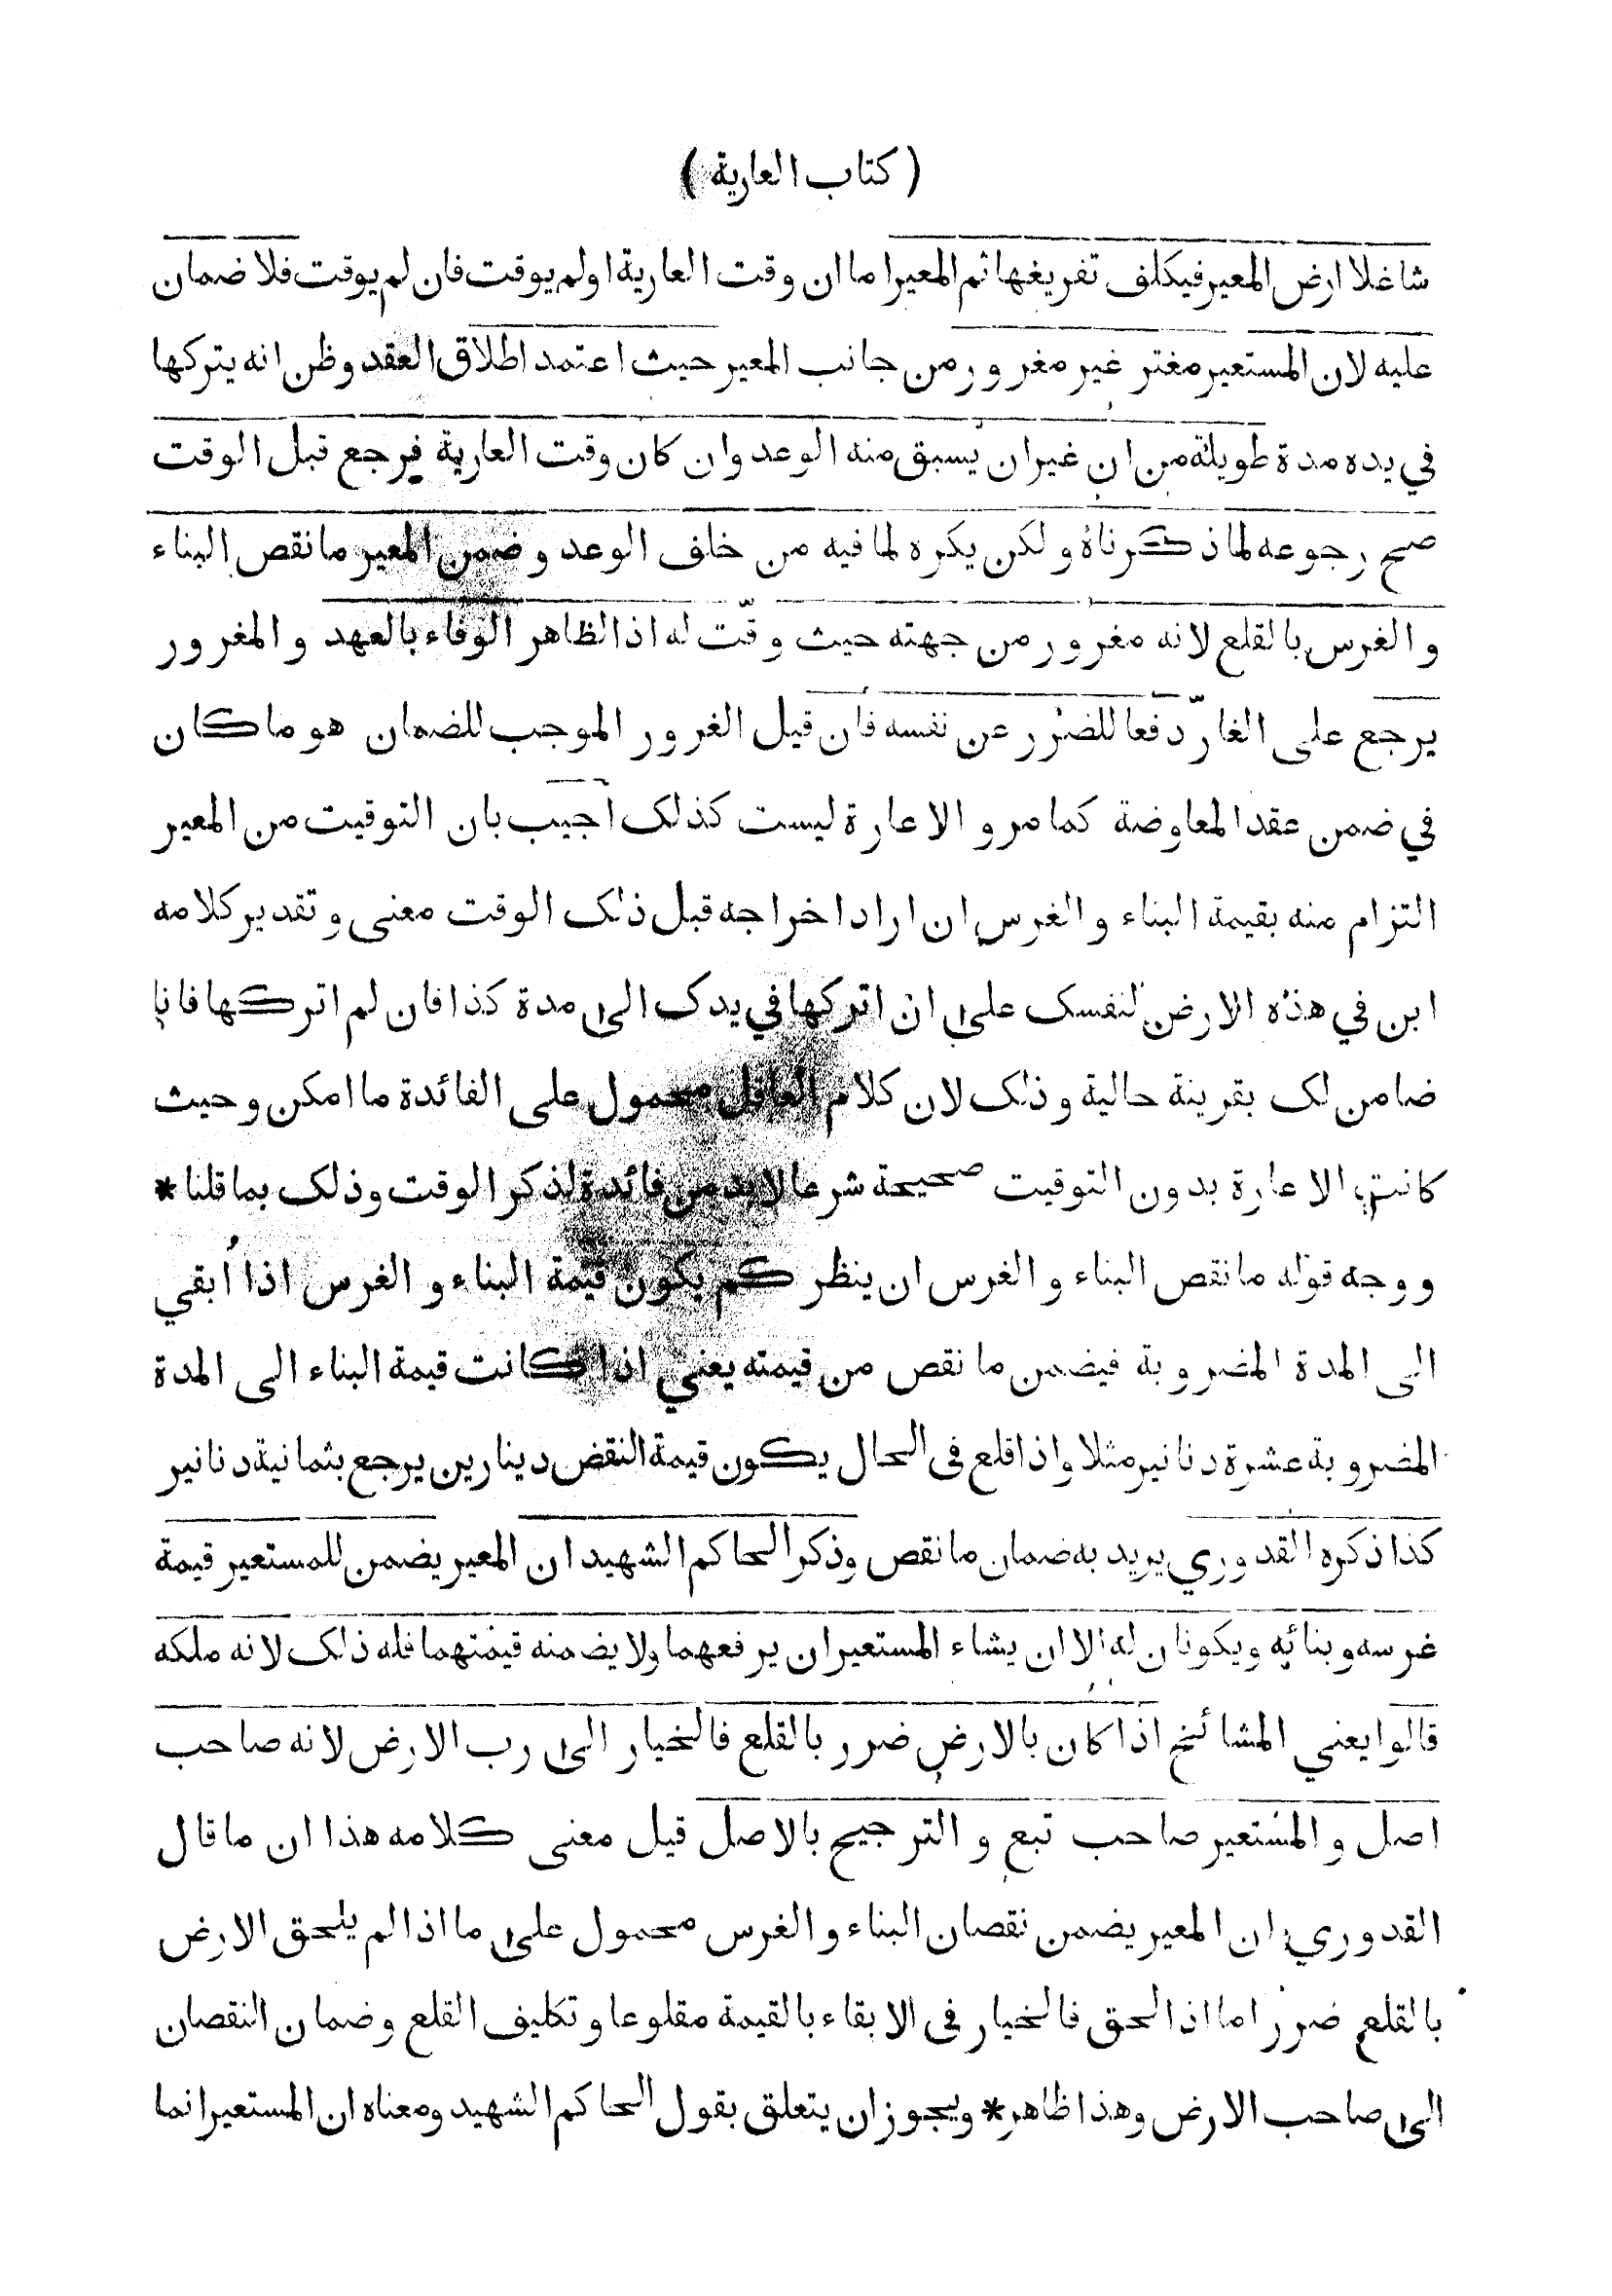 ( كتاب العارية )
شاغلا ارض المعير فيكلف تفريغها ثم المعير اما ان وقت العارية او لم يوقت فان لم يوقت فلا ضمان
عليه لان المستعير مغتر غير مغرور من جانب المعير حيث اعتمد اطلاق العقد وظن انه يتركها
في يده مدة طويلة من ان غير ان يسبق منه الوعد وان كان وقت العارية فرجع قبل الوقت
صح رجوعه لما ذكرناه ولكن يكره لما فيه من خلف الوعد وضمن المعير ما نقص البناء
والغرس بالقلع لانه مغرور من جهته حيث وقّت له اذ الظاهر الوفاء بالعهد والمغرور
يرجع على الغارّ دفعا للضرر عن نفسه فان قيل الغرور الموجب للضمان هو ما كان
في ضمن عقد المعاوضة كما مر والاعارة ليست كذلك اجيب بان التوقيت من المعير
التزام منه بقيمة البناء والغرس ان اراد اخراجه قبل ذلك الوقت معنى وتقدير كلامه
ابن في هذه الارض لنفسك على ان اتركها في يدك الى مدة كذا فان لم اتركها فانا
ضامن لك بقرينة حالية وذلك لان كلام العاقل محمول على الفائدة ما امكن وحيث
كانت الاعارة بدون التوقيت صحيحة شرعا لابد من فائدة لذكر الوقت وذلك بما قلنا *
ووجه قوله ما نقص البناء والغرس ان ينظر كم يكون قيمة البناء والغرس اذا اُبقي
الى المدة المضروبة فيضمن ما نقص من قيمته يعني اذا كانت قيمة البناء الى المدة
المضروبة عشرة دنانير مثلا واذا قلع في الحال يكون قيمة النقض دينارين يرجع بثمانية دنانير
كذا ذكره القدوري يريد به ضمان ما نقص وذكر الحاكم الشهيد ان المعير يضمن للمستعير قيمة
غرسه وبنائه ويكونان له الا ان يشاء المستعير ان يرفعهما ولا يضمنه قيمتهما فله ذلك لانه ملكه
قالوا يعني المشائخ اذا كان بالارض ضرر بالقلع فالخيار الى رب الارض لانه صاحب
اصل والمستعير صاحب تبع والترجيح بالاصل قيل معنى كلامه هذا ان ما قال
القدوري ان المعير يضمن نقصان البناء والغرس محمول على ما اذا لم يلحق الارض
بالقلع ضرر اما اذا لحق فالخيار في الابقاء بالقيمة مقلوعا وتكليف القلع وضمان النقصان
الى صاحب الارض وهذا ظاهر * ويجوز ان يتعلق بقول الحاكم الشهيد ومعناه ان المستعير انما